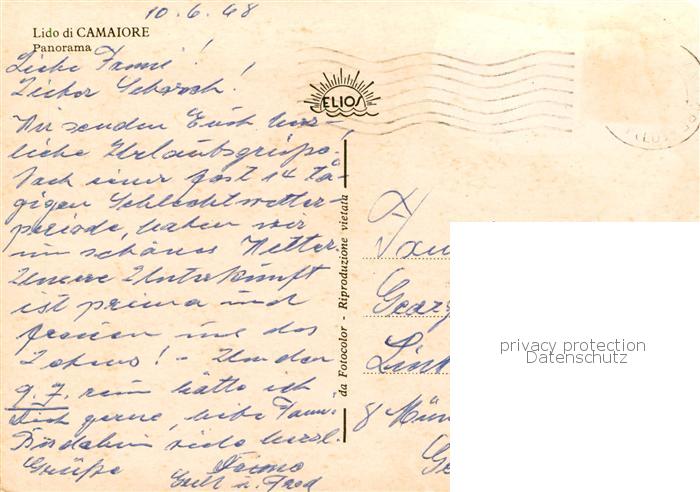 10.6.68
Lido di CAMAIORE
Panorama
Liebe Fanni!
Lieber Schorsch!
Wir senden Euch herz-
liche Urlaubsgrüße.
Nach einer fast 14 tä-
gigen Schlechtwetter-
periode, haben wir
nun schönes Wetter.
Unsere Unterkunft
ist prima und
freuen uns des
Lebens! - Um den
9. 7. rum hätte ich
Dich gerne, liebe Fanni.
viele herzl.
Grüße
ELIOS
da Fotocolor - Riproduzione vietata
Georg
8 Mün
privacy protection
Datenschutz